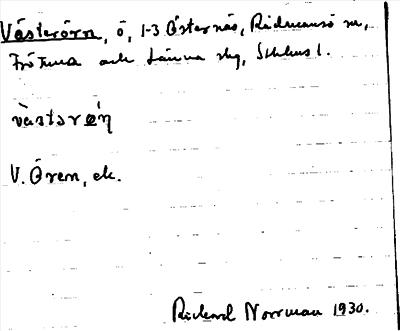 Västerörn, ö, 1-3 Östernäs, Rådmansö sn,
Frötuna och Länna skg, Sthlms l.
vàstərø̀ṇ
V. Ören, ek.
Rickard Norrman 1930.